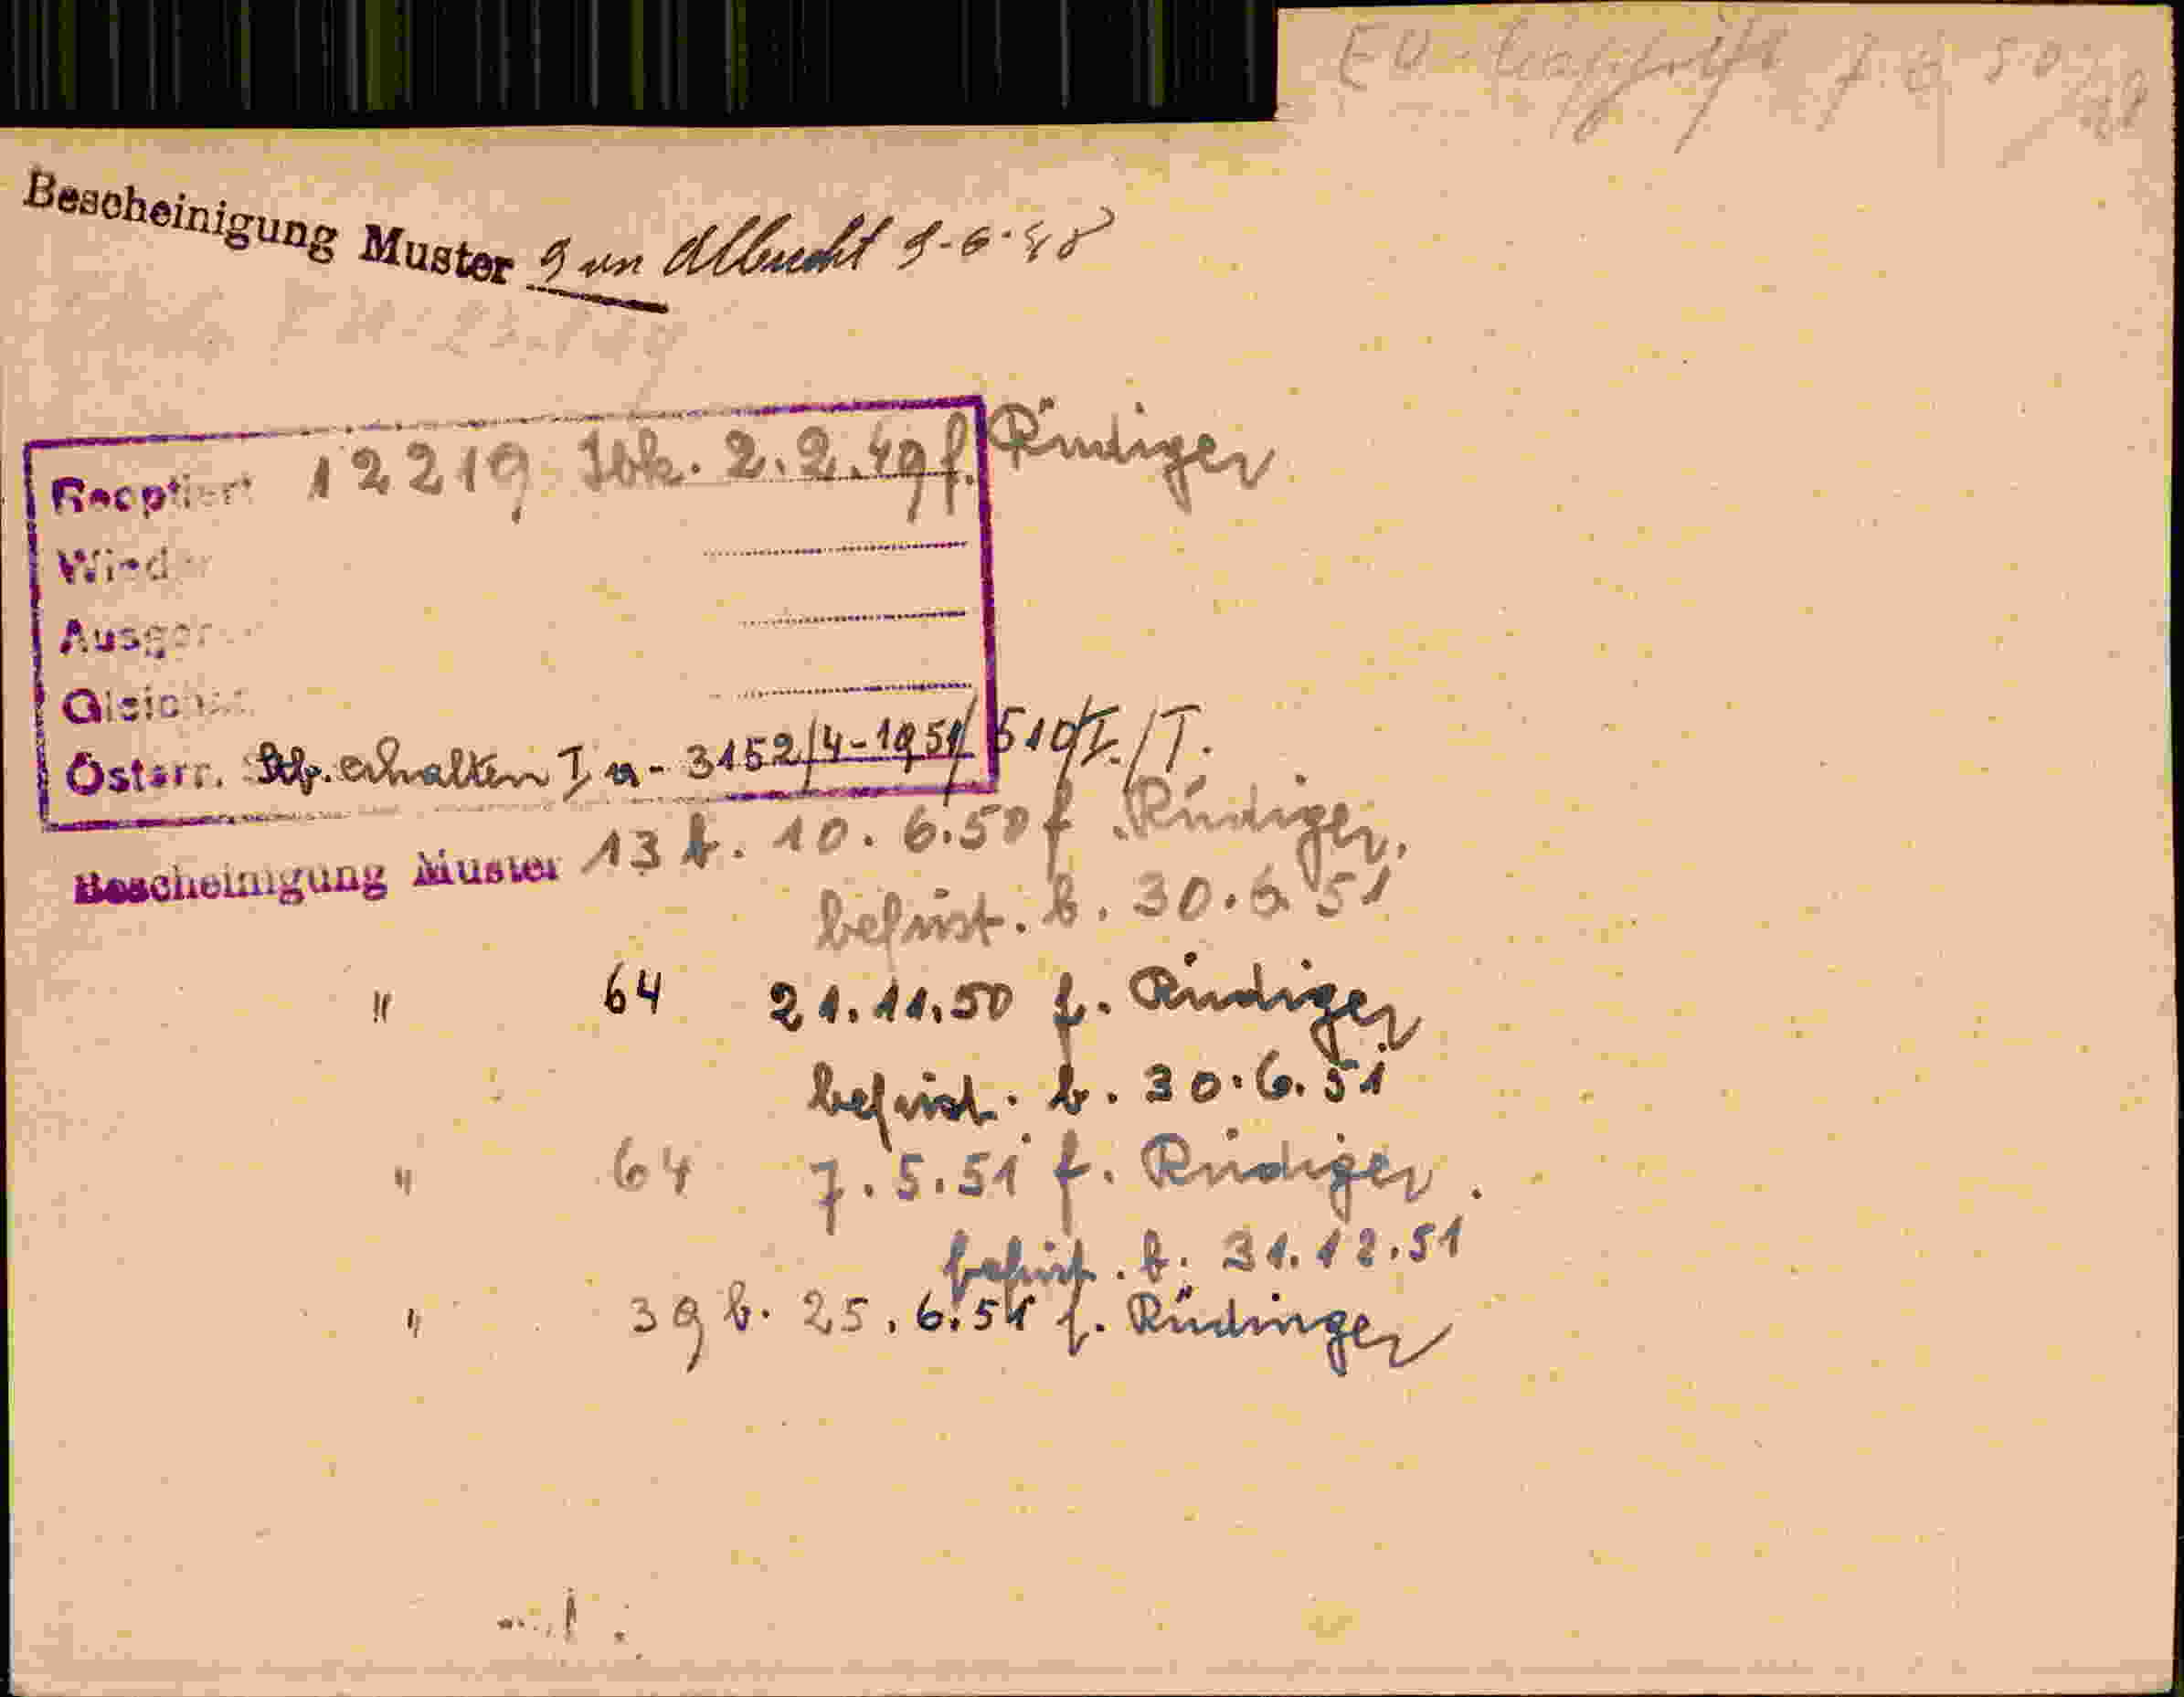 Bescheinigung Muster 9 von Albrecht 9-6-48
Reoptiert 12219 Ibk. 2.2.49 f. Rüdiger
Wieder
Ausger
Gleich
Österr. Stb. erhalten I a - 3152/4-1951/510/I./T.
Bescheinigung Muster 13 b. 10.6.50 f. Rüdiger.
befrist. b. 30.6.51
" 64 21.11.50 f. Rüdiger
befrist. b. 30.6.51
" 64 7.5.51 f. Rüdiger.
befrist. b. 31.12.51
" 39 b. 25.6.51 f. Rüdinger